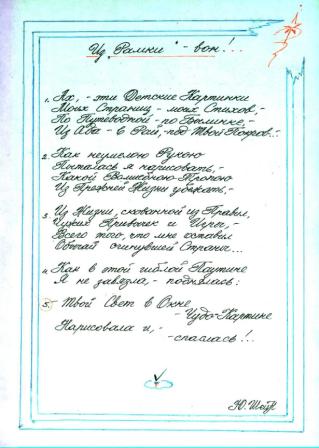 Из „Рамки" - вон!...
1. Ах, - эти Детские Картинки
Моих Страниц, - моих Стихов, -
По Путеводной - по Былинке, -
Из Ада - в Рай, - под Твой Покров...
2. Как неумелою Рукою
Пыталась я написовать, -
Какой Волшебною Тропою
Из Прежней Жизни убежать, -
3. Из Жизни, скованной из Правил,
Чужих Привычек и Игры, -
Всего того, что мне оставил
Обычай сгинувшей Страны...
4. Как в этой гиблой Паутине
Я не завязла, - поднялась:
5. - Твой Свет в Окне, -
- Чудо-Картине
Нарисовала и, -
- спаслась!..
Ю. Шейн